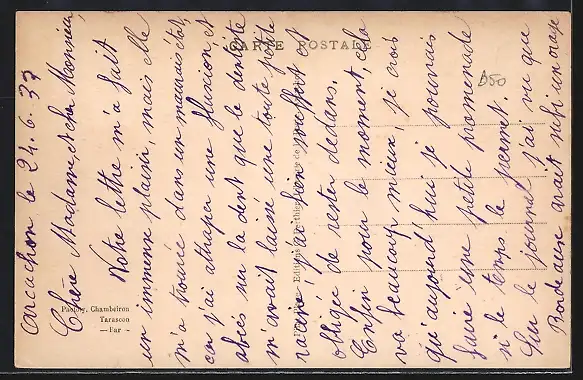 Arcachon le 24.6.37
Chère Madame, et cher Monsieur,
Votre lettre m'a fait
un immense plaisir, mais elle
m'a trouvée dans un mauvais état,
car j'ai attrapé une fluxion et
abcès sur la dent que le dentiste
m'avait laissé une toute petite
racine, j'ai bien souffert et
obligée de rester dedans.
Enfin pour le moment, cela
va beaucoup mieux, je crois
qu'aujourd'hui je pourrais
faire une petite promenade
si le temps le permet.
Sur le journal j'ai vu que
Bordeaux avait subi un orage
CARTE POSTALE
D50
Chambeiron
Tarascon